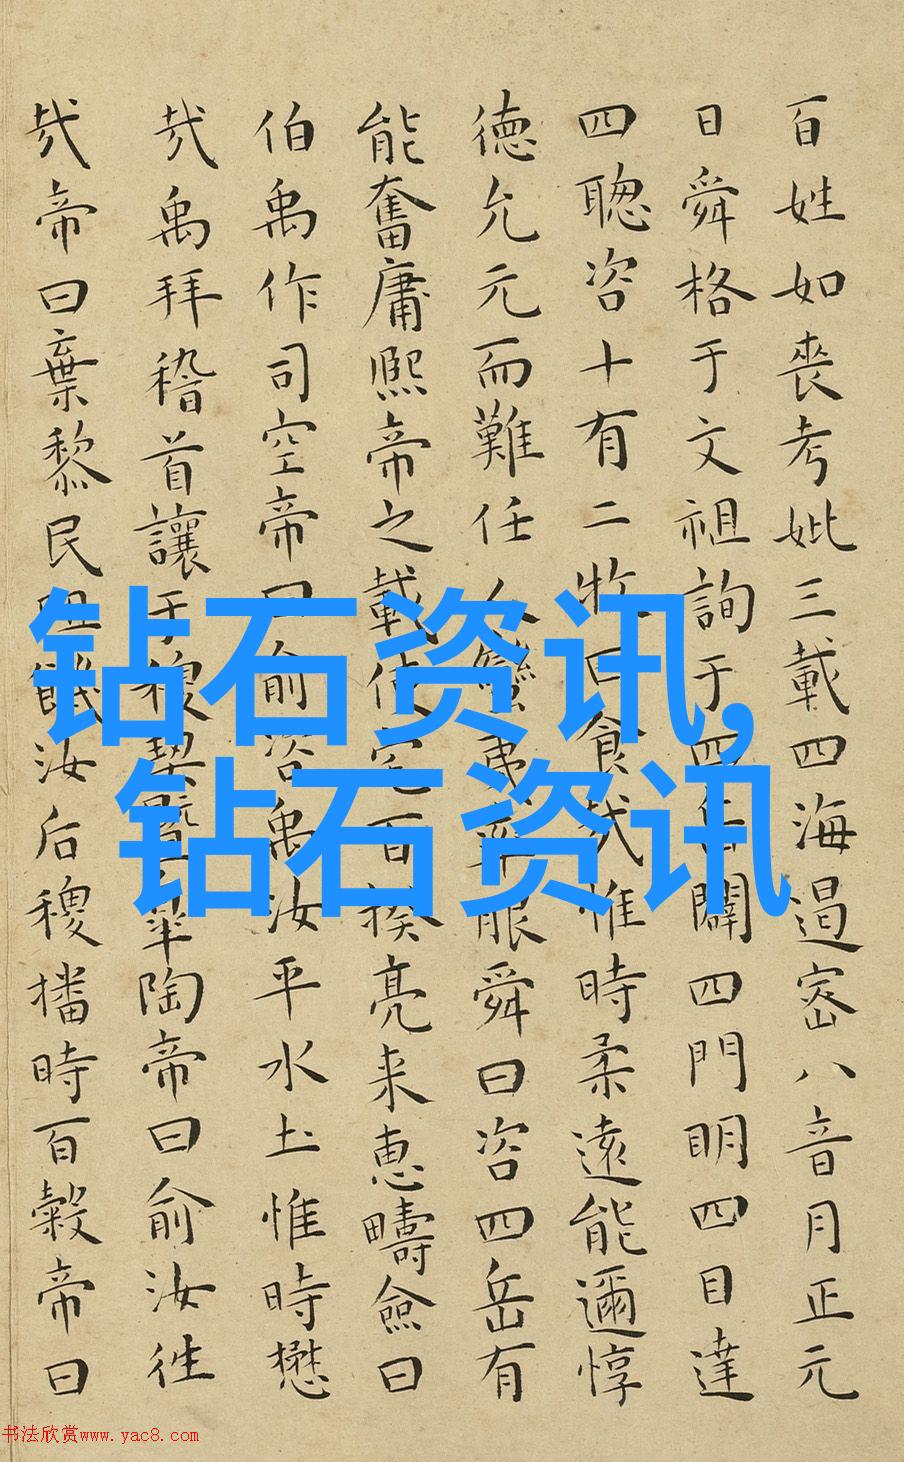 百姓如喪考妣三載四海遏密八音月正元
日舜格于文祖詢于四岳闢四門明四目達
四聰咨十有二牧曰食哉惟時柔遠能邇惇
德允元而難任人蠻夷率服舜曰咨四岳有
能奮庸熙帝之載使宅百揆亮采惠疇僉曰
伯禹作司空帝曰俞咨禹汝平水土惟時懋
哉禹拜稽首讓于稷契暨皋陶帝曰俞汝往
哉帝曰棄黎民阻饑汝后稷播時百穀帝曰
钻石资讯,
钻石资讯
书法欣赏www.yac8.com